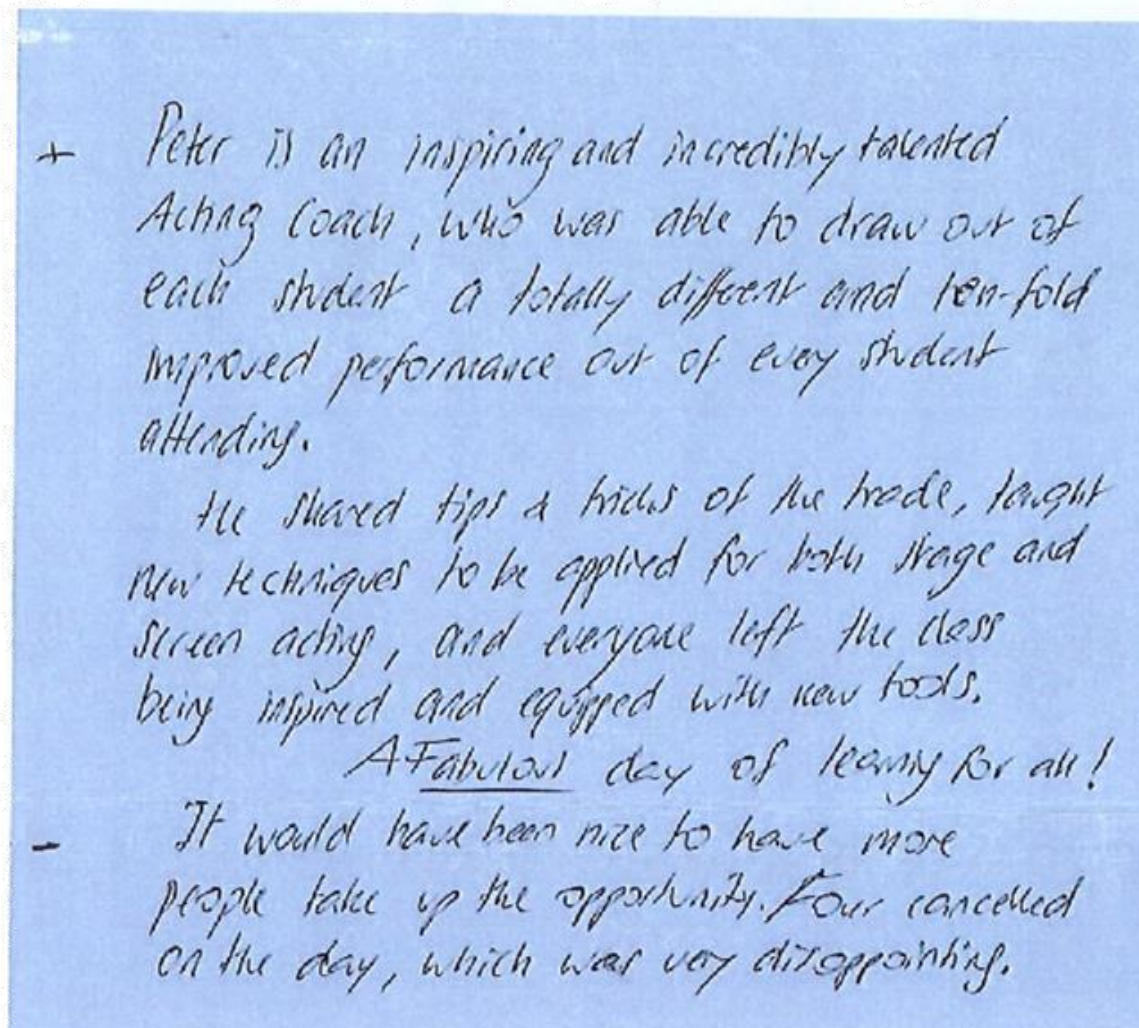 + Peter is an inspiring and incredibly talented
Acting Coach, who was able to draw out of
each student a totally different and ten-fold
improved performance out of every student
attending.
He shared tips & tricks of the trade, taught
new techniques to be applied for both stage and
screen acting, and everyone left the class
being inspired and equipped with new tools.
A Fabulous day of learning for all!
- It would have been nice to have more
people take up the opportunity. Four cancelled
on the day, which was very disappointing.